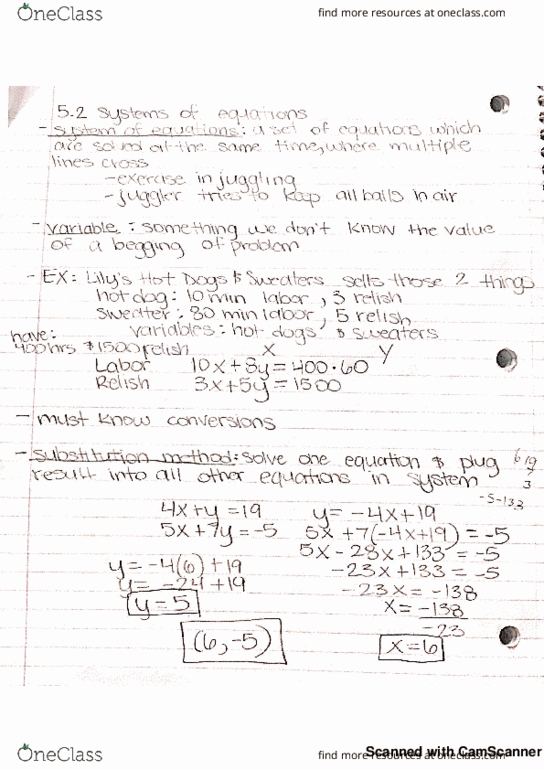 OneClass
find more resources at oneclass.com
5.2 systems of equations
- system of equations: a set of equations which
are solved at the same time, where multiple
lines cross
- exercise in juggling
- juggler tries to keep all balls in air
- variable: something we don't know the value
of a begging of problem
- EX: Lily's Hot Dogs & Sweaters sells those 2 things
hot dog: 10 min labor, 3 relish
sweater: 80 min labor, 5 relish
have: variables: hot dogs, & sweaters
400hrs $1500 relish X Y
Labor 10x + 8y = 400·60
Relish 3x + 5y = 1500
- must know conversions
- substitution method: solve one equation & plug
result into all other equations in system
6 19
7
3
-5-133
4x+y=19 y= -4x+19
5x+7y=-5 5x+7(-4x+19)=-5
5x-28x+133=-5
y=-4(6)+19 -23x+133=-5
y= -24+19 -23x=-138
y=5 x= -138
-23
(6,-5) x=6
OneClass
find more resources at oneclass.com
Scanned with CamScanner